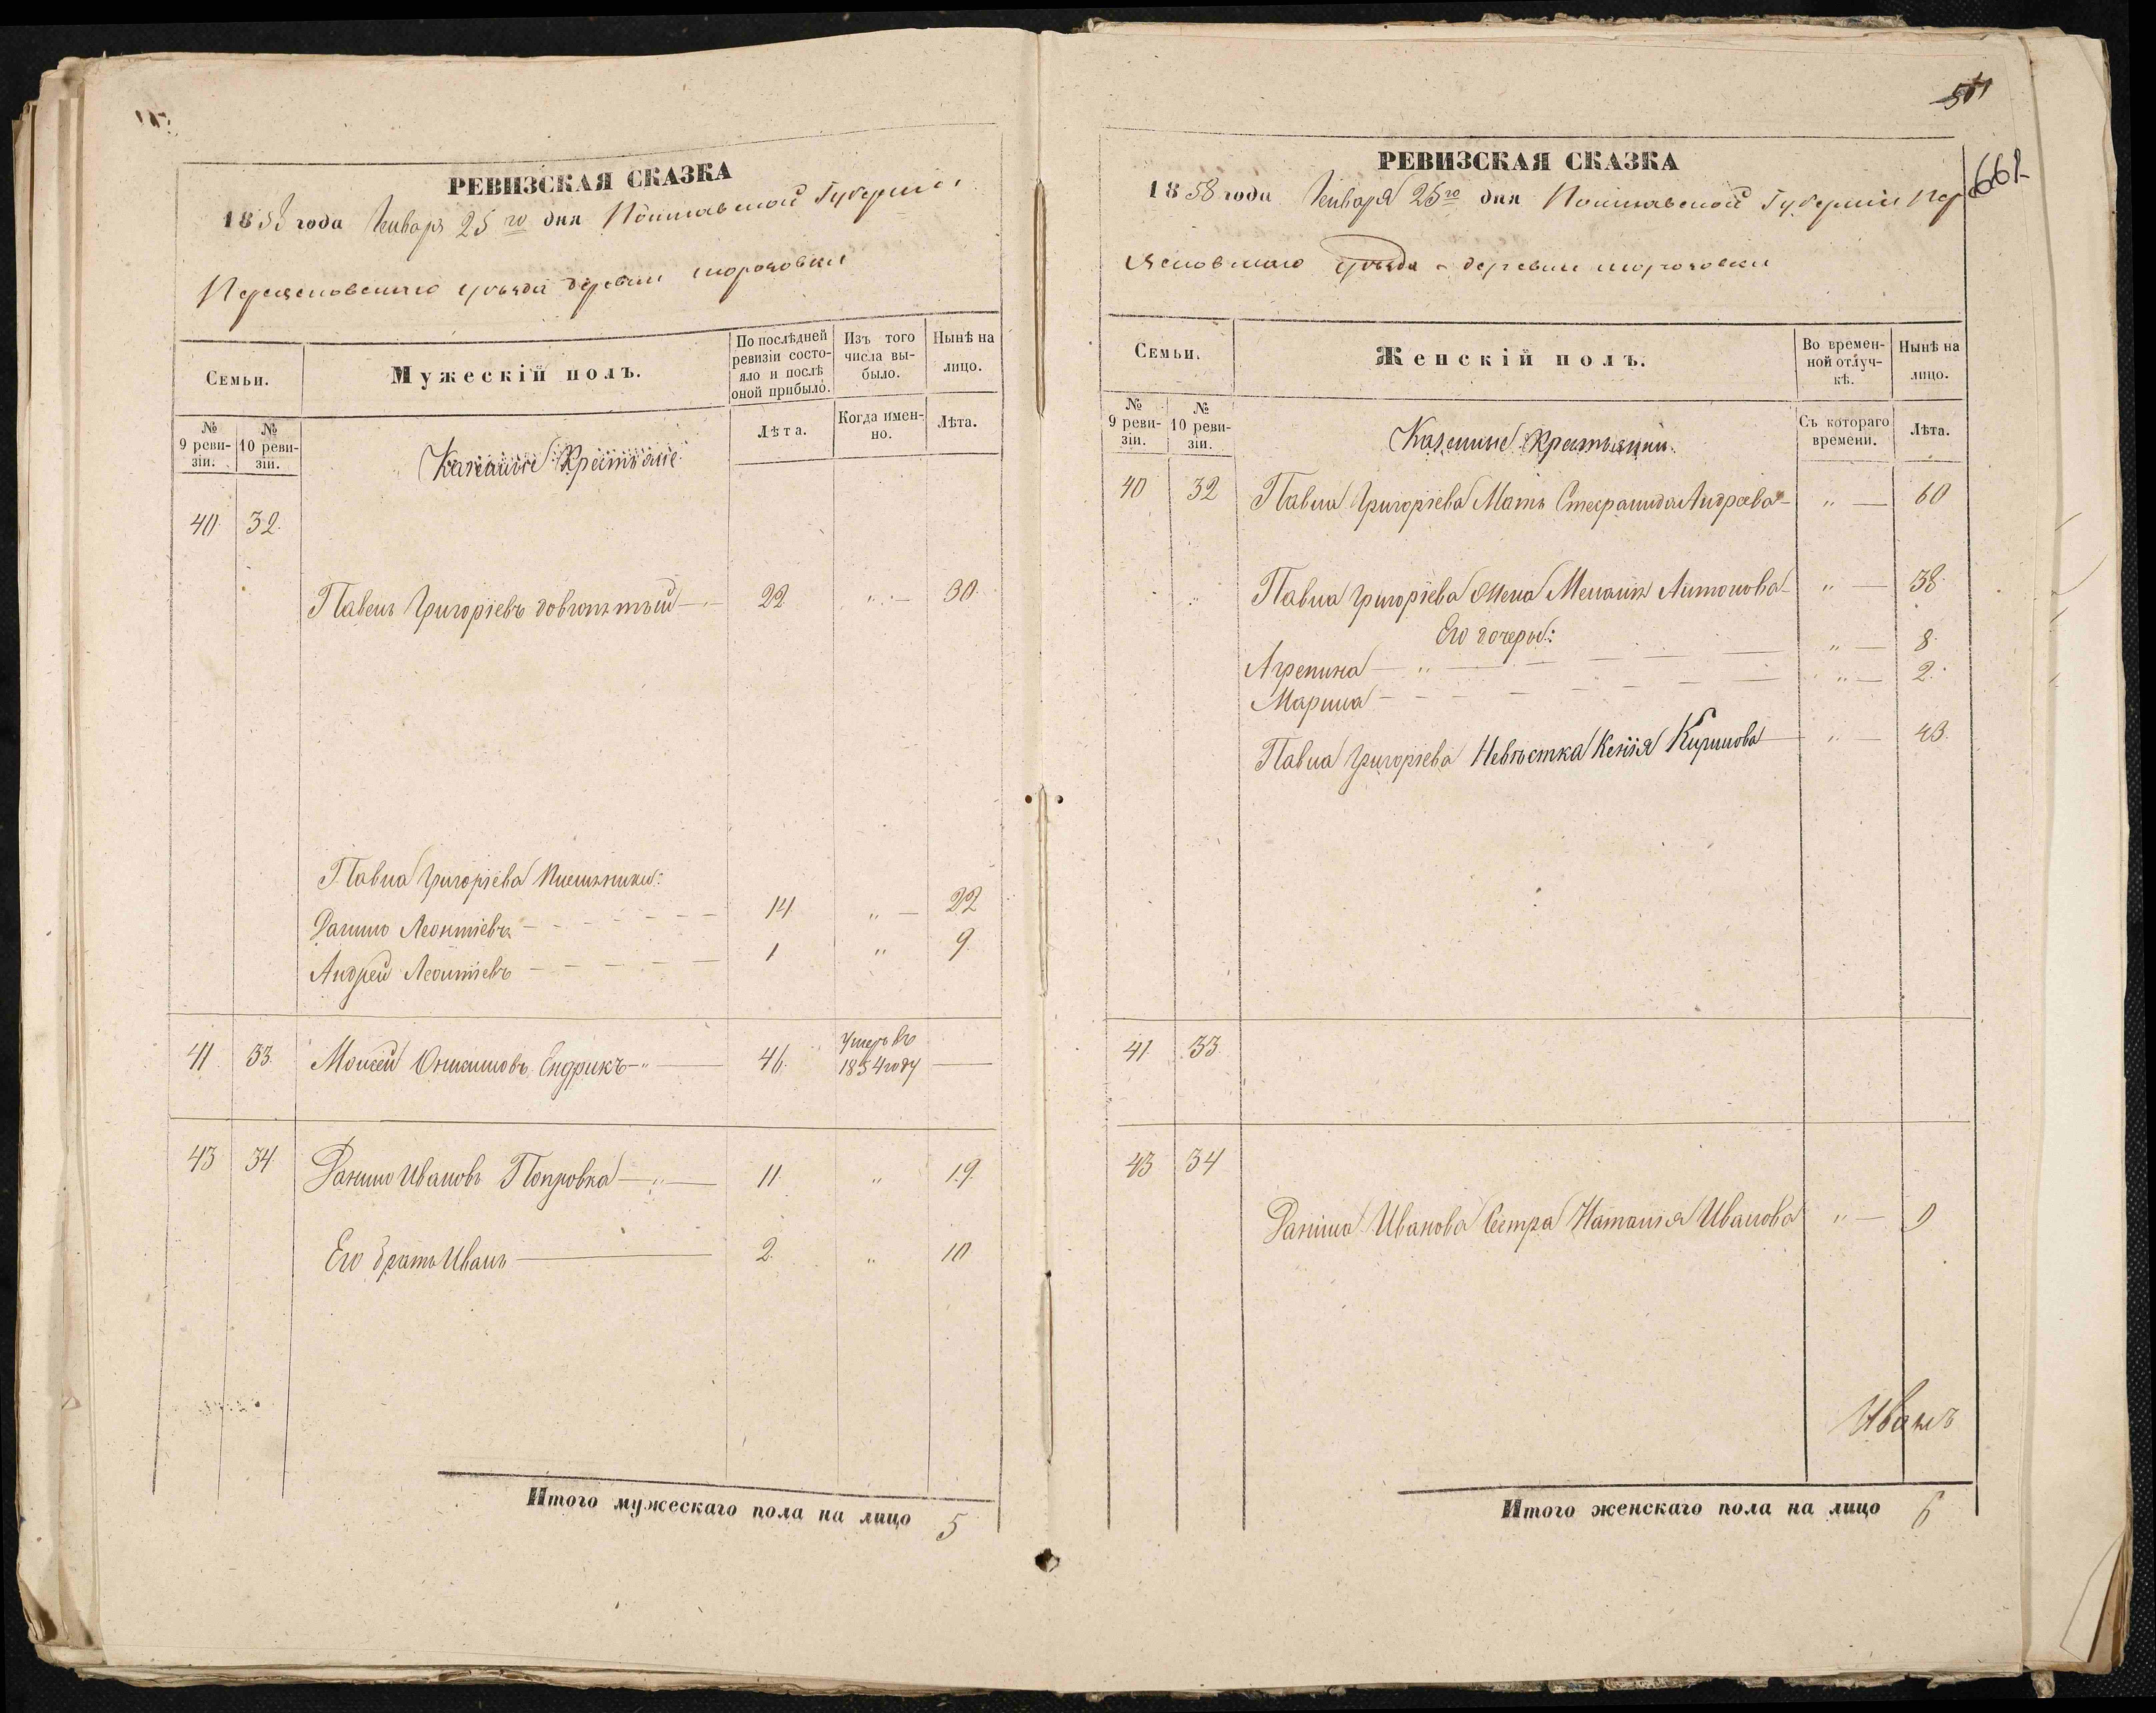 РЕВИЗСКАЯ СКАЗКА
1858 года Января 25го дня Полтавской Губерніи
Переясловскаго уѣзда деревни
Семьи.
Мужескій полъ.
По послѣдней ревизіи состояло и послѣ оной прибыло.
Изъ того числа выбыло.
Нынѣ на лицо.
№ 9 ревизіи.
№ 10 ревизіи.
Казенные Крестьяне
Лѣта.
Когда именно.
Лѣта.
40 32
Павелъ Григоріевъ 22 „ — 30
Павла Григоріева Племянники:
Данило Леонтіевъ 14 „ — 22
Андрей Леонтіевъ 1 „ 9
41 33 Моисей Ендрикъ 46 Умеръ въ 1854 году —
43 34 Данило Ивановъ 11 „ 19
Его братъ Иванъ 2 „ 10
Итого мужескаго пола на лицо 5
511
661
РЕВИЗСКАЯ СКАЗКА
1858 года Января 25го дня Полтавской Губерніи Пер
ясловскаго уѣзда деревни
Семьи.
Женскій полъ.
Во временной отлучкѣ.
Нынѣ на лицо.
№ 9 ревизіи.
№ 10 ревизіи.
Казенные Крестьянки
Съ котораго времени.
Лѣта.
40 32 Павла Григоріева Мать Андреева „ — 60
Павла Григоріева Жена Антонова „ — 38
Его дочери:
Агрепина „ — 8
Марина „ — 2
Павла Григоріева Невѣстка Ксенія Кирилова „ — 43
41 33
43 34
Данила Иванова Сестра Наталія Иванова „ — 9
Иванъ
Итого женскаго пола на лицо 6